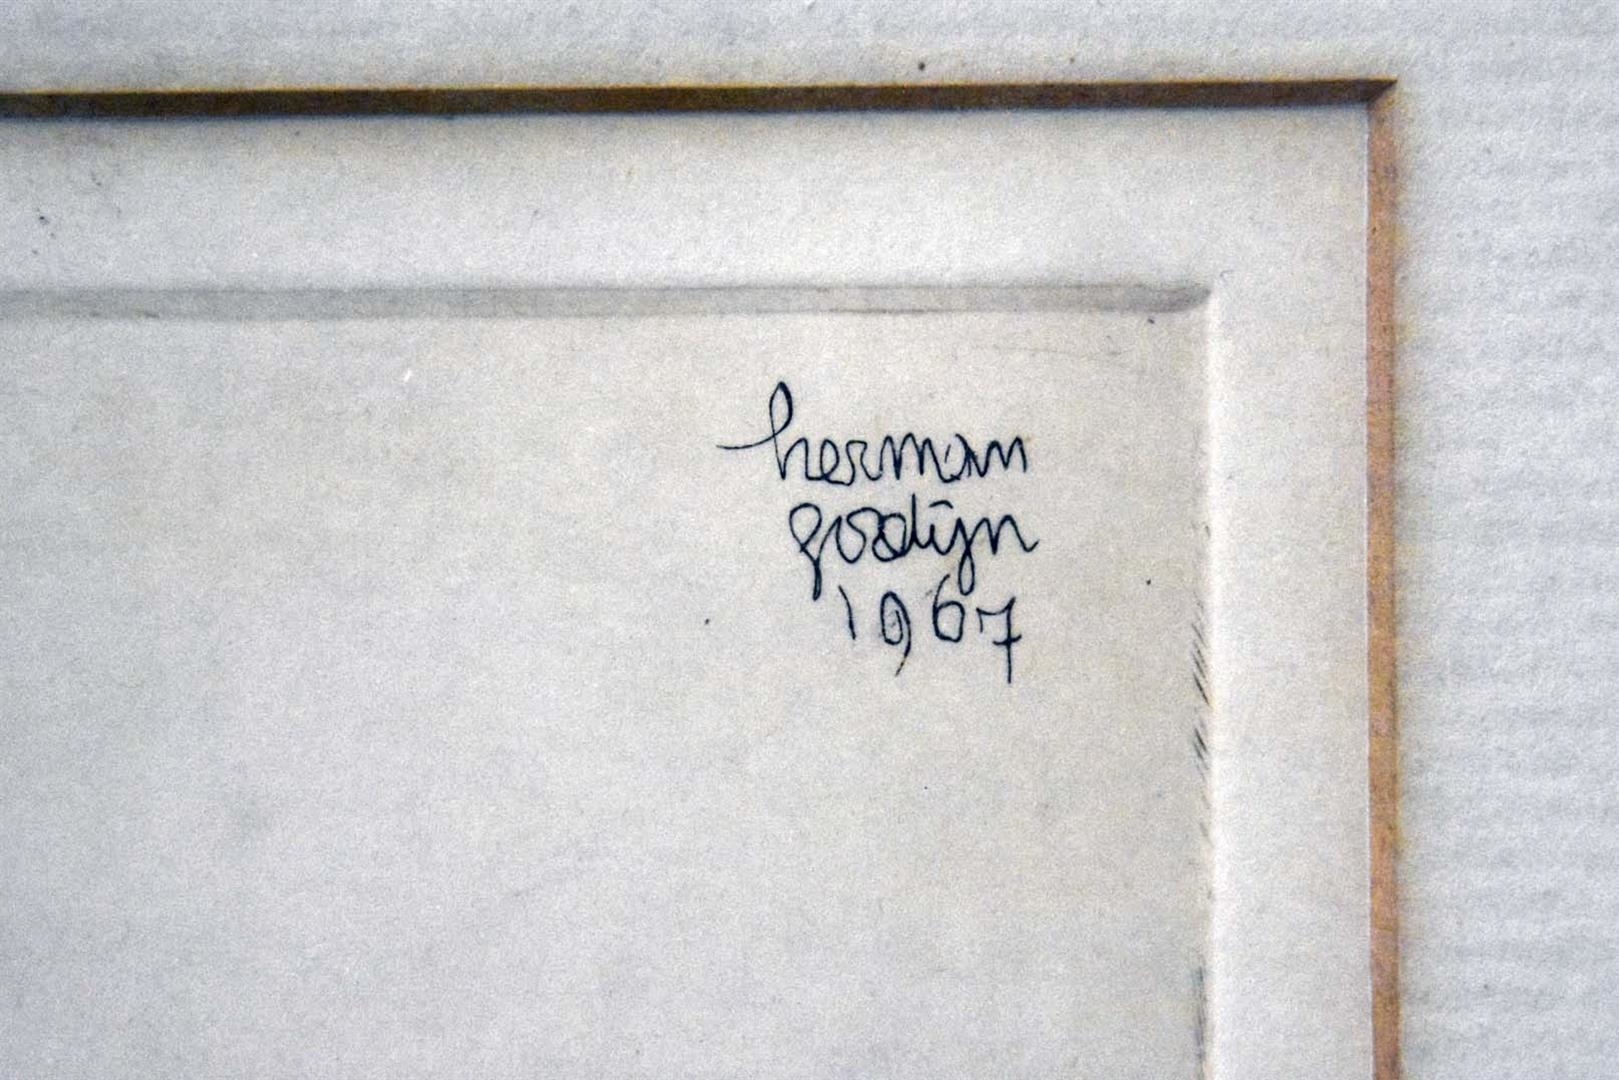 herman
gordijn
1967